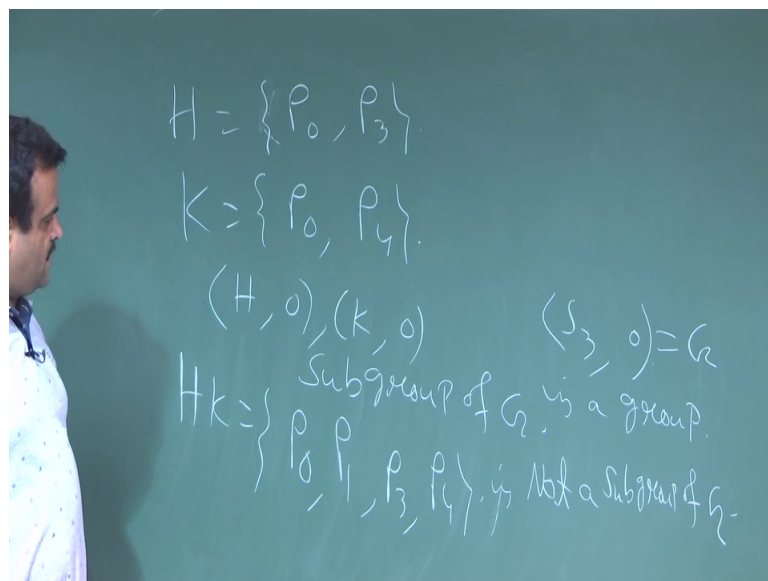 H = {P₀, P₃}.
K = {P₀, P₄}.
(H, 0), (K, 0)
(S₃, 0) = G
Subgroup of G, is a group.
HK = {P₀, P₁, P₃, P₄}. is Not a Subgroup of G.